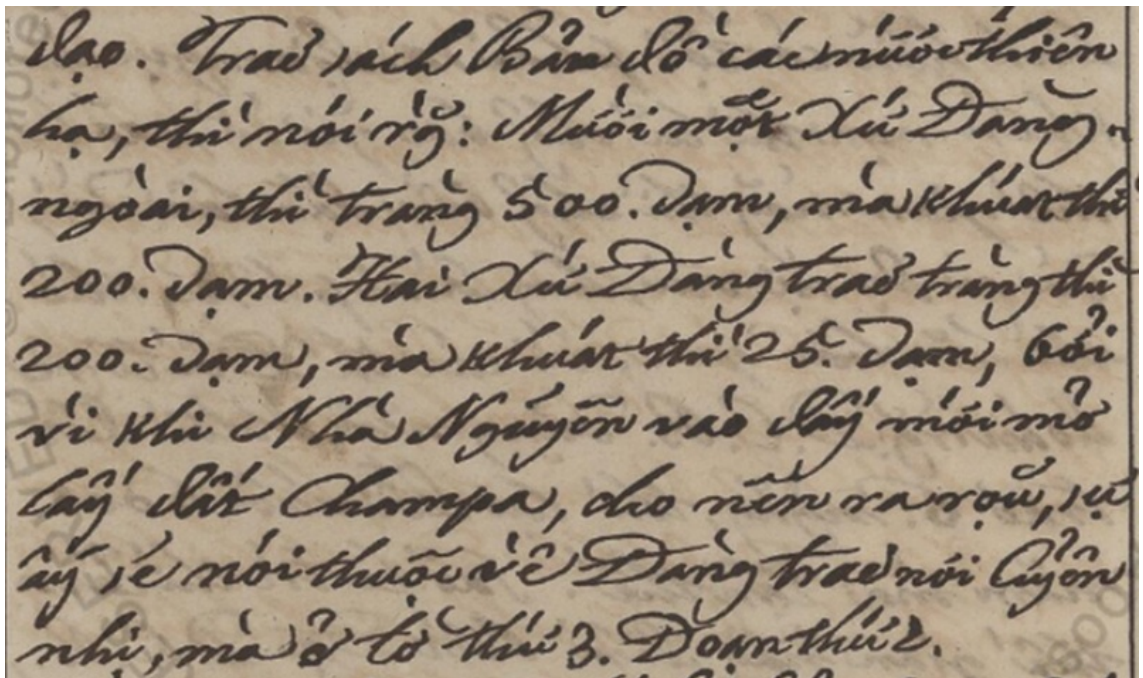 đạo. Traơ sách Bản đồ các nước thiên
hạ, thì nói rằ̆: Mười một Xứ Đàng
ngoài, thì tràng 500. dạm, mà khuát thì
200. dạm. Hai Xứ Đàng traơ tràng thì
200. dạm, mà khuát thì 25. dạm, bởi
vì khi Nhà Nguyễn vào đấy mới mở
lấy đất Champa, cho nên ra rộ̆, sự
ấy sẽ nói thuộc về Đàng traơ nơi Quyển
nhì, mà ở tờ thứ 3. Đoạn thứ 2.